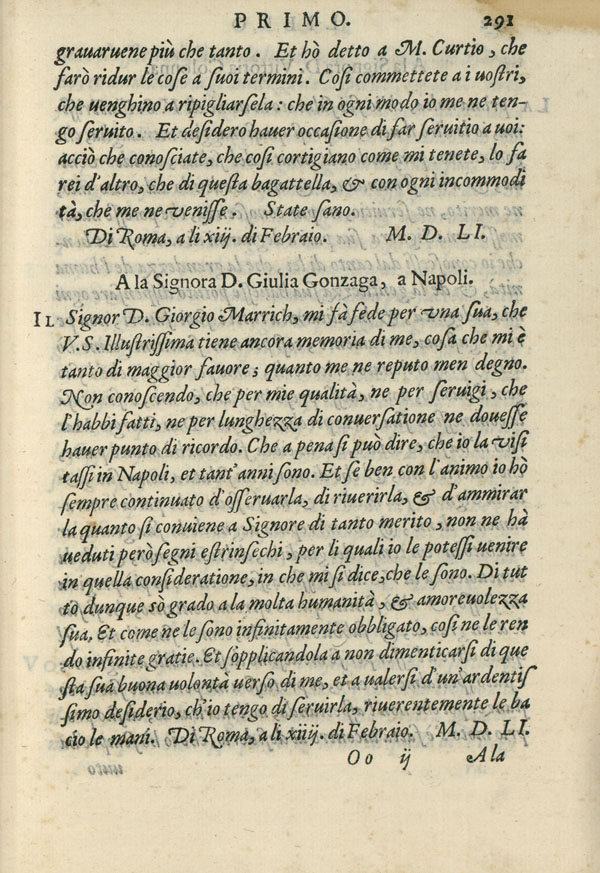 PRIMO. 291
grauaruene più che tanto. Et hò detto a M. Curtio, che
farò ridur le cose a suoi termini. Cosi commettete a i uostri,
che uenghino a ripigliarsela: che in ogni modo io me ne ten-
go seruito. Et desidero hauer occasione di far seruitio a uoi:
acciò che conosciate, che cosi cortigiano come mi tenete, lo fa
rei d'altro, che di questa bagattella, & con ogni incommodi
tà, che me ne venisse. State sano.
Di Roma, a li xiij. di Febraio. M. D. LI.
A la Signora D. Giulia Gonzaga, a Napoli.
IL Signor D. Giorgio Marrich, mi fà fede per vna sua, che
V.S. Illustrissima tiene ancora memoria di me, cosa che mi è
tanto di maggior fauore; quanto me ne reputo men degno.
Non conoscendo, che per mie qualità, ne per seruigi, che
l'habbi fatti, ne per lunghezza di conuersatione ne douesse
hauer punto di ricordo. Che a pena si può dire, che io la visi
tassi in Napoli, et tant'anni sono. Et se ben con l'animo io hò
sempre continuato d'osseruarla, di riuerirla, & d'ammirar
la quanto si conuiene a Signore di tanto merito, non ne hà
ueduti però segni estrinsechi, per li quali io le potessi uenire
in quella consideratione, in che mi si dice, che le sono. Di tut
to dunque sò grado a la molta humanità, & amoreuolezza
sua. Et come ne le sono infinitamente obbligato, cosi ne le ren
do infinite gratie. Et sopplicandola a non dimenticarsi di que
sta sua buona uolontà verso di me, et a ualersi d'un'ardentis
simo desiderio, ch'io tengo di seruirla, riuerentemente le ba
cio le mani. Di Roma, a li xiiij. di Febraio. M. D. LI.
Oo ij A la